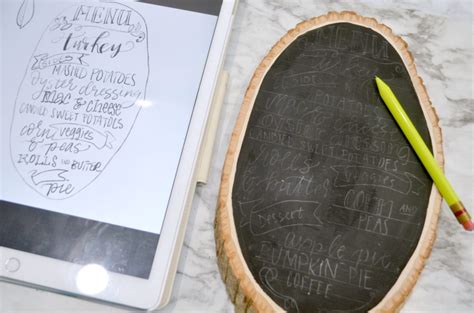 MENU
Turkey
MASHED POTATOES
oyster dressing
mac & cheese
CANDIED SWEET POTATOES
corn veggies
& peas
ROLLS AND BUTTER
pie
MENU
SIDES
POTATOES
CANDIED SWEET POTATOES
rolls
& butter
veggies
CORN AND
PEAS
Dessert
apple pie
PUMPKIN PIE
COFFEE